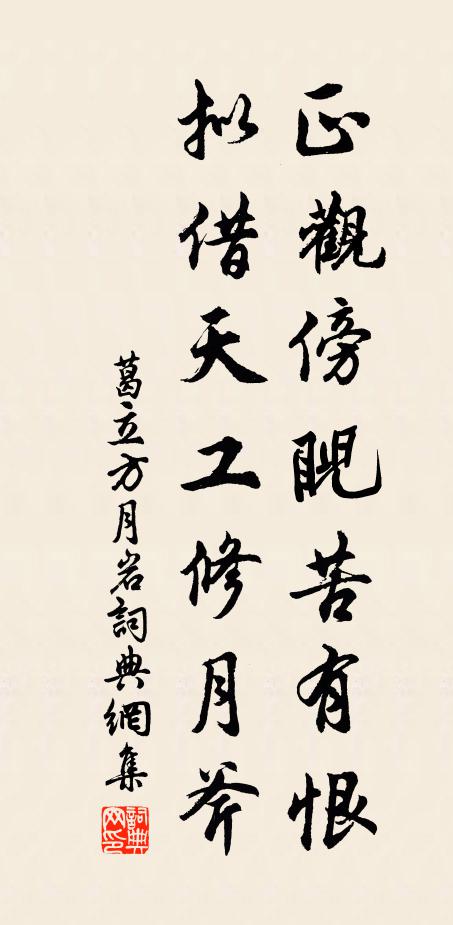 正觀傍睨苦有恨
拟借天工修月斧
葛立方月岩詞典網集
詞典网印